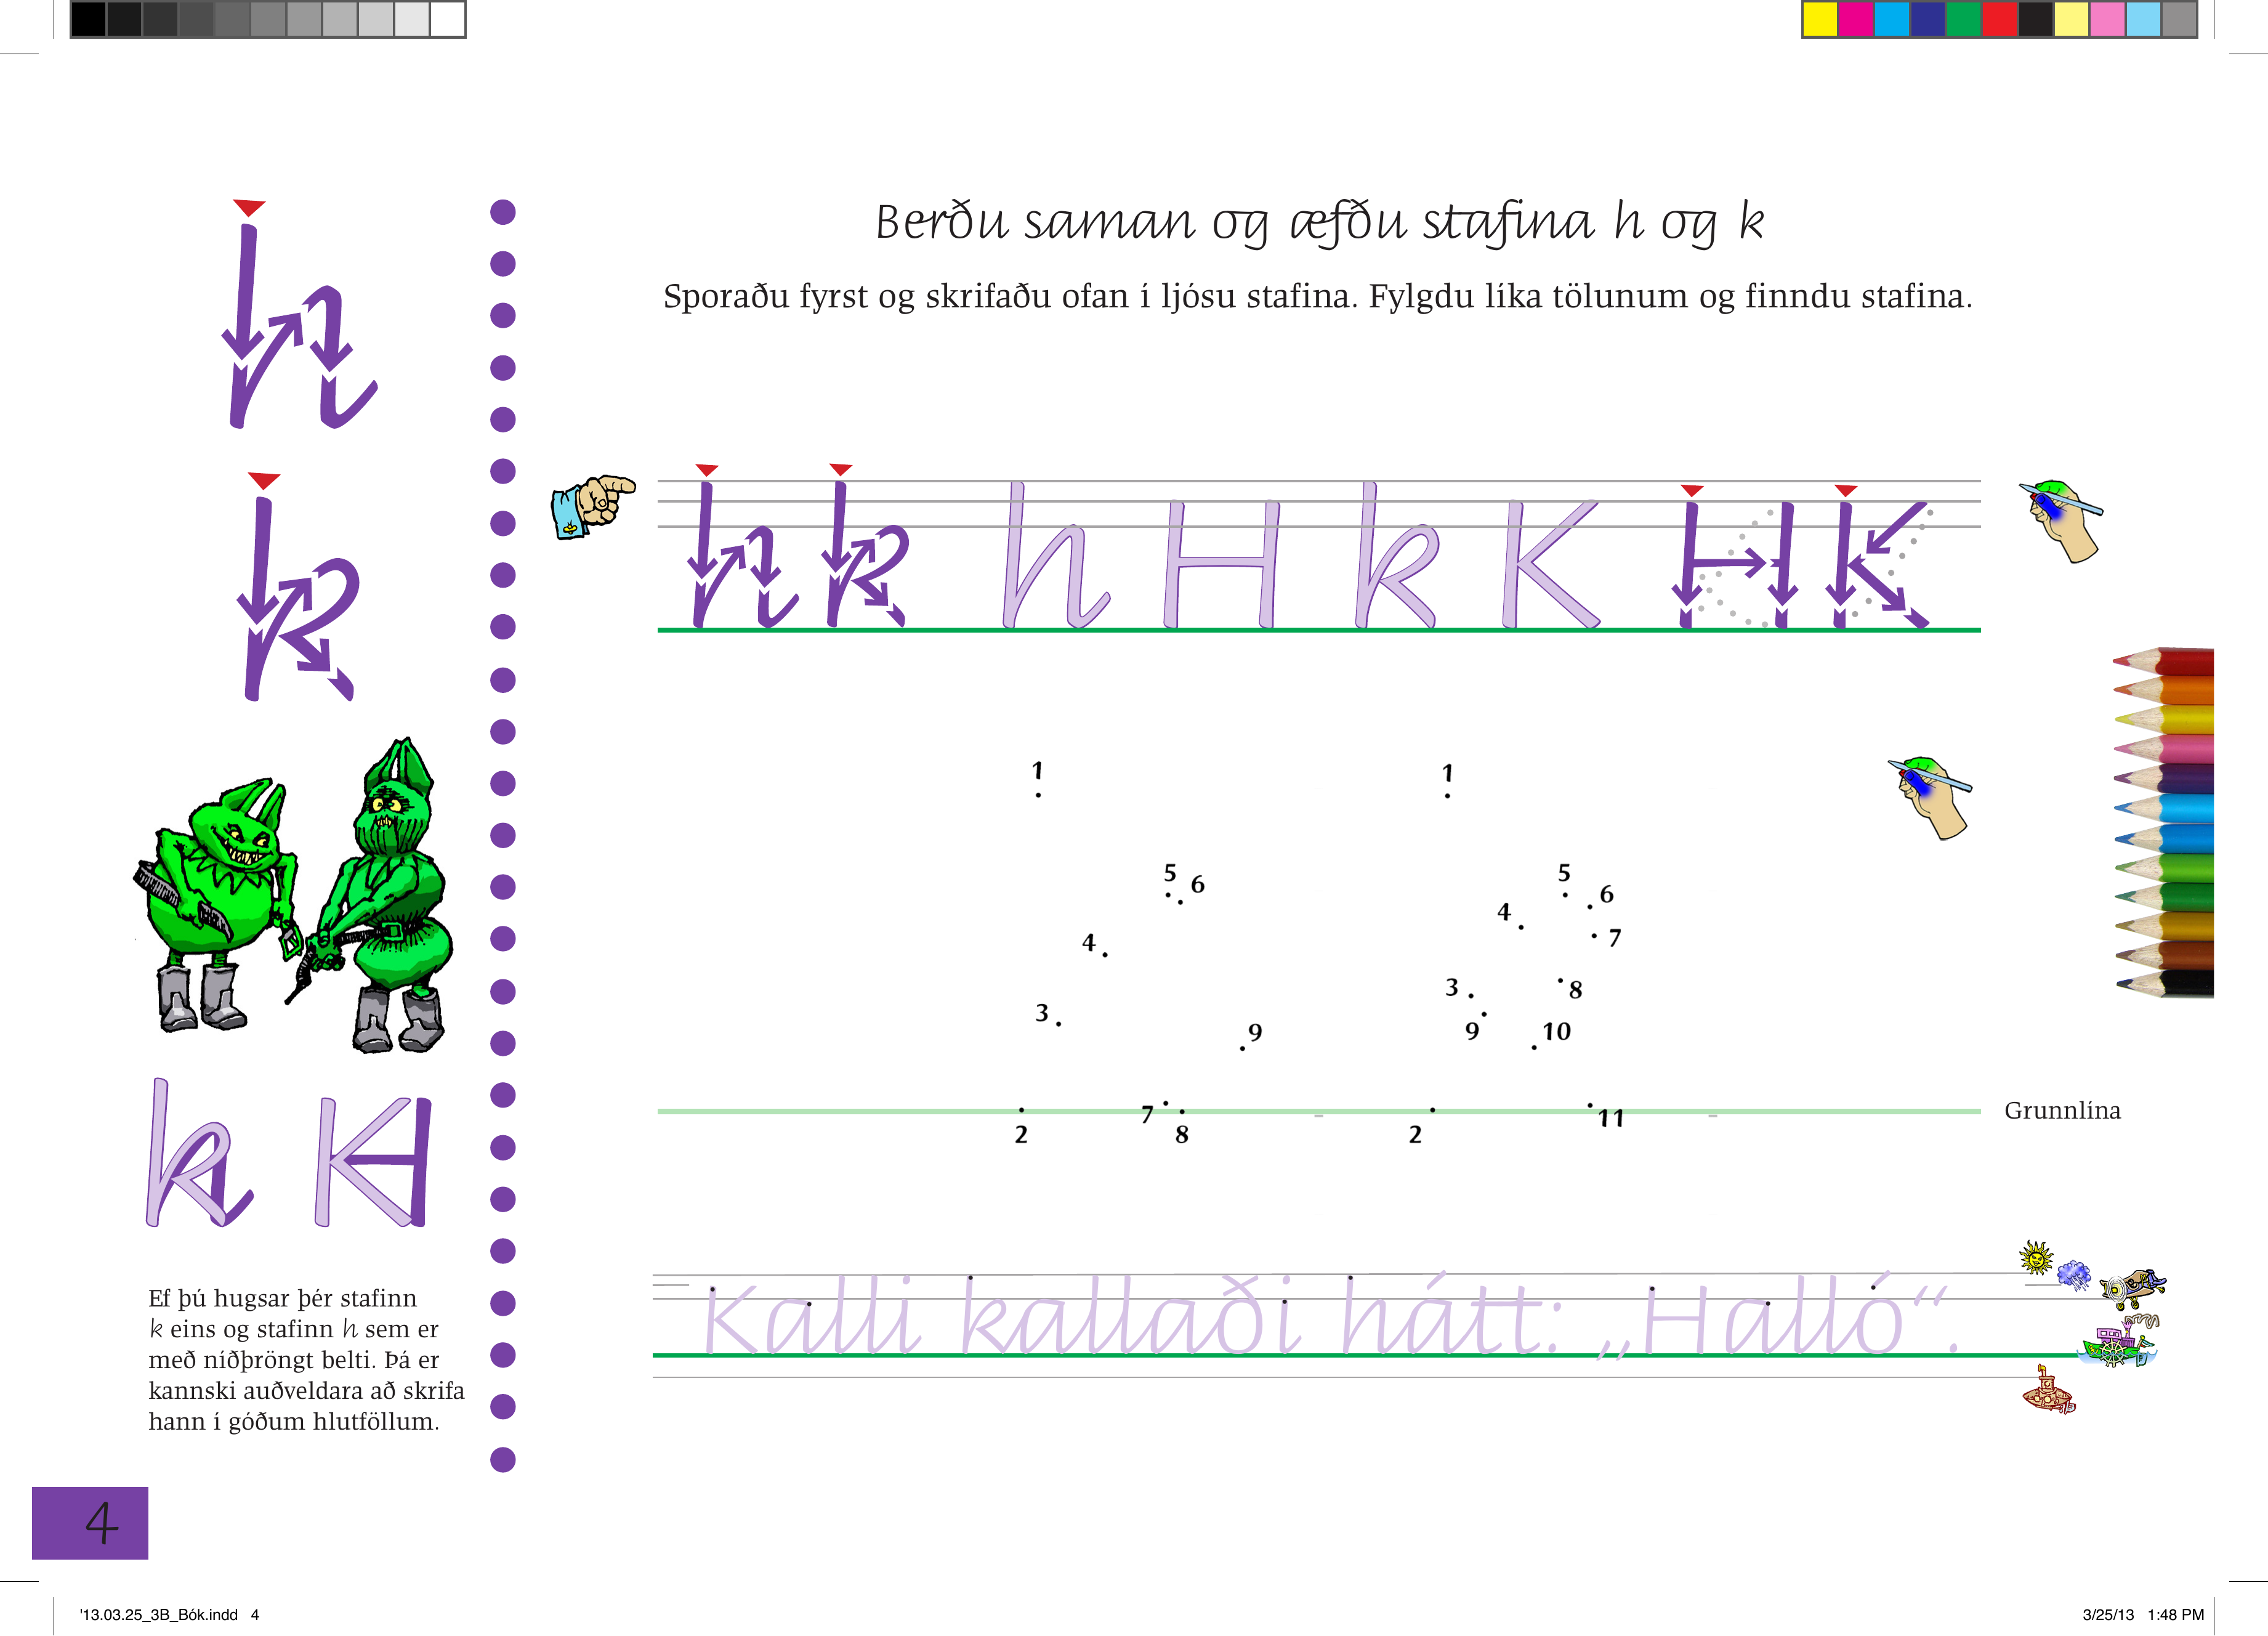 Berðu saman og æfðu stafina h og k
Sporaðu fyrst og skrifaðu ofan í ljósu stafina. Fylgdu líka tölunum og finndu stafina.
h
k
h k h H k K H K
1 1
5 6 5 6
4 4 7
3 3 8
9 9 10
7 11
2 8 2
Grunnlína
k K
Kalli kallaði hátt: „Halló“.
Ef þú hugsar þér stafinn
k eins og stafinn h sem er
með níðþröngt belti. Þá er
kannski auðveldara að skrifa
hann í góðum hlutföllum.
4
'13.03.25_3B_Bók.indd 4
3/25/13 1:48 PM